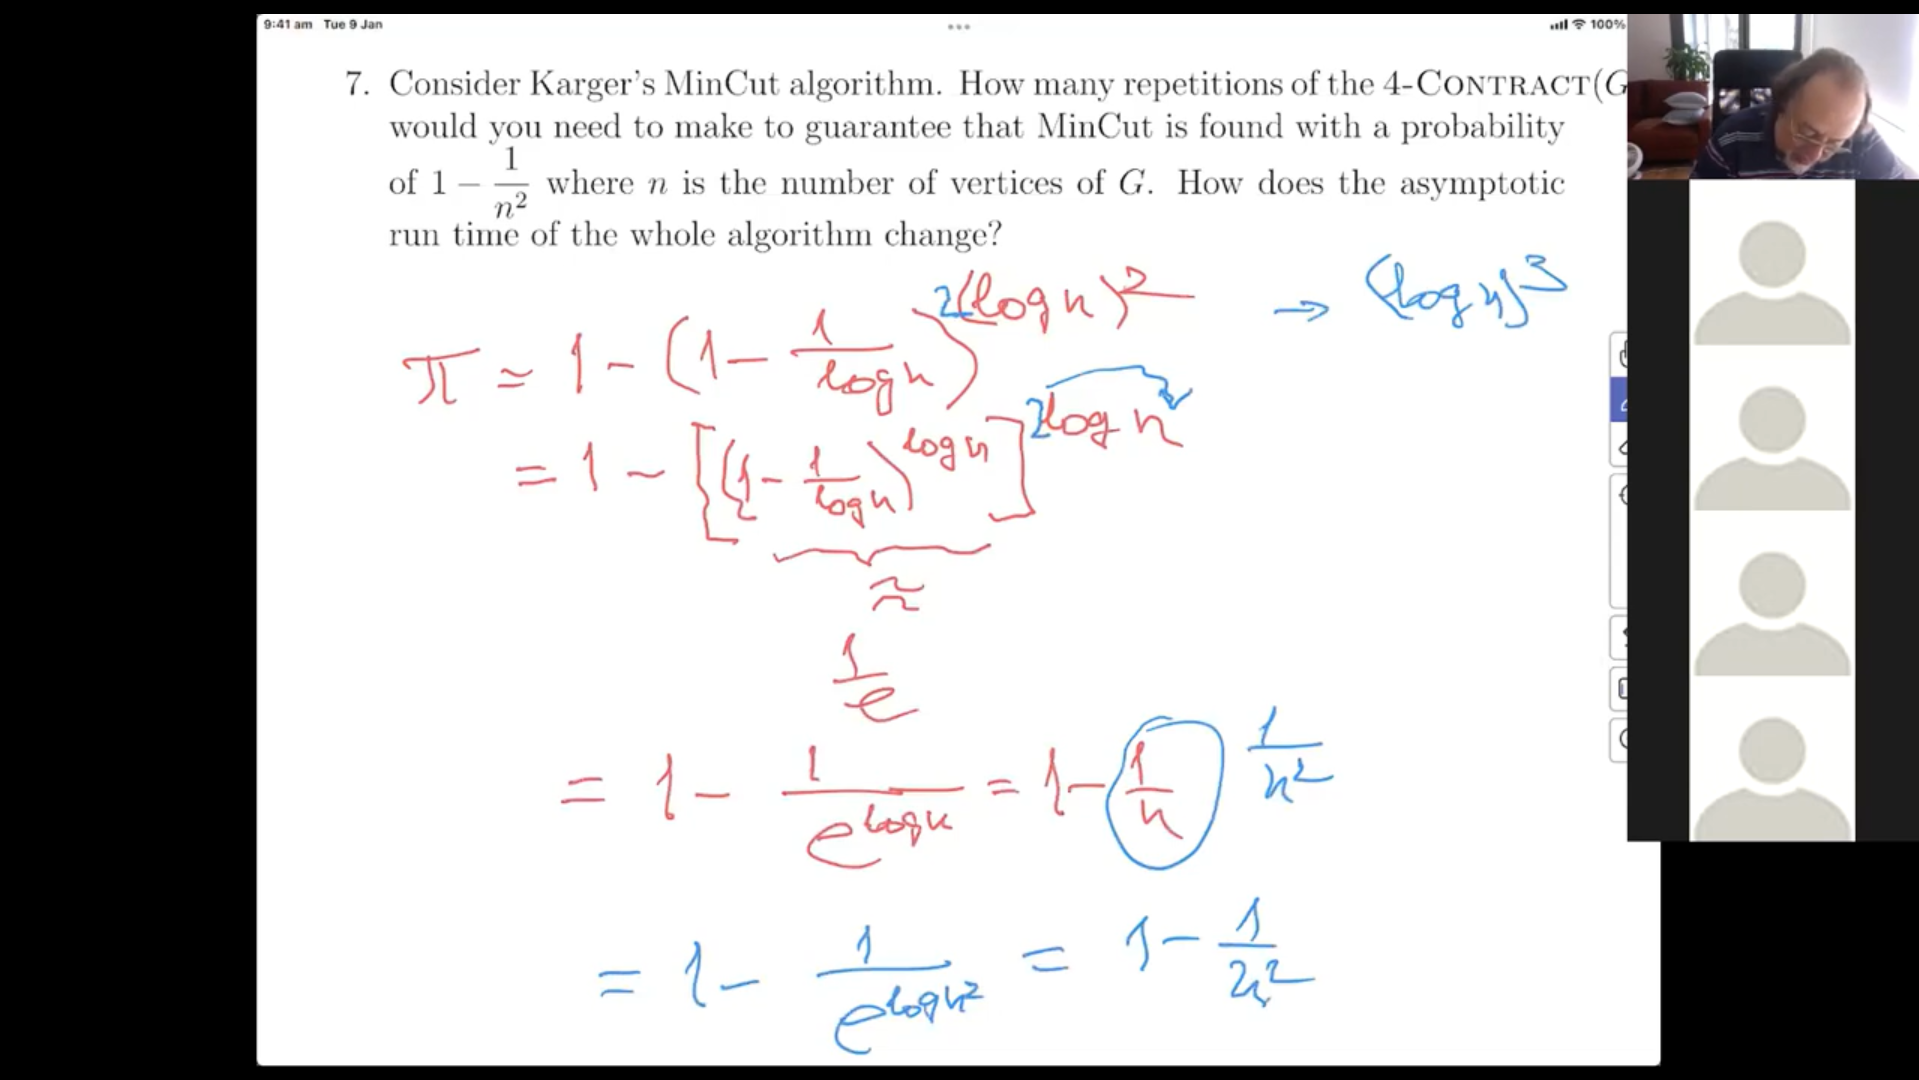 9:41 am Tue 9 Jan
100%
7. Consider Karger's MinCut algorithm. How many repetitions of the 4-CONTRACT(G
would you need to make to guarantee that MinCut is found with a probability
of 1 − 1/n² where n is the number of vertices of G. How does the asymptotic
run time of the whole algorithm change?
π ≈ 1 - (1 - 1/log n)^2(log n)^2 → (log n)^3
= 1 - [(1 - 1/log n)^log n]^2 log n
≈
1/e
= 1 - 1/e^log n = 1 - 1/n 1/n²
= 1 - 1/e^log n² = 1 - 1/n²